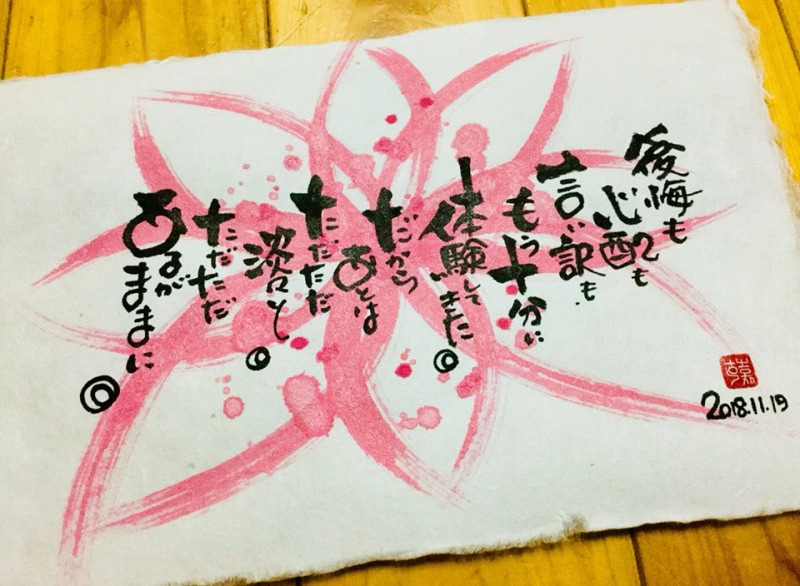 後悔も
心配も
言い訳も
もう十分に
体験してきた◎
だから
あとは
ただただ
淡々と◎
ただただ
あるが
ままに◎
2018.11.19